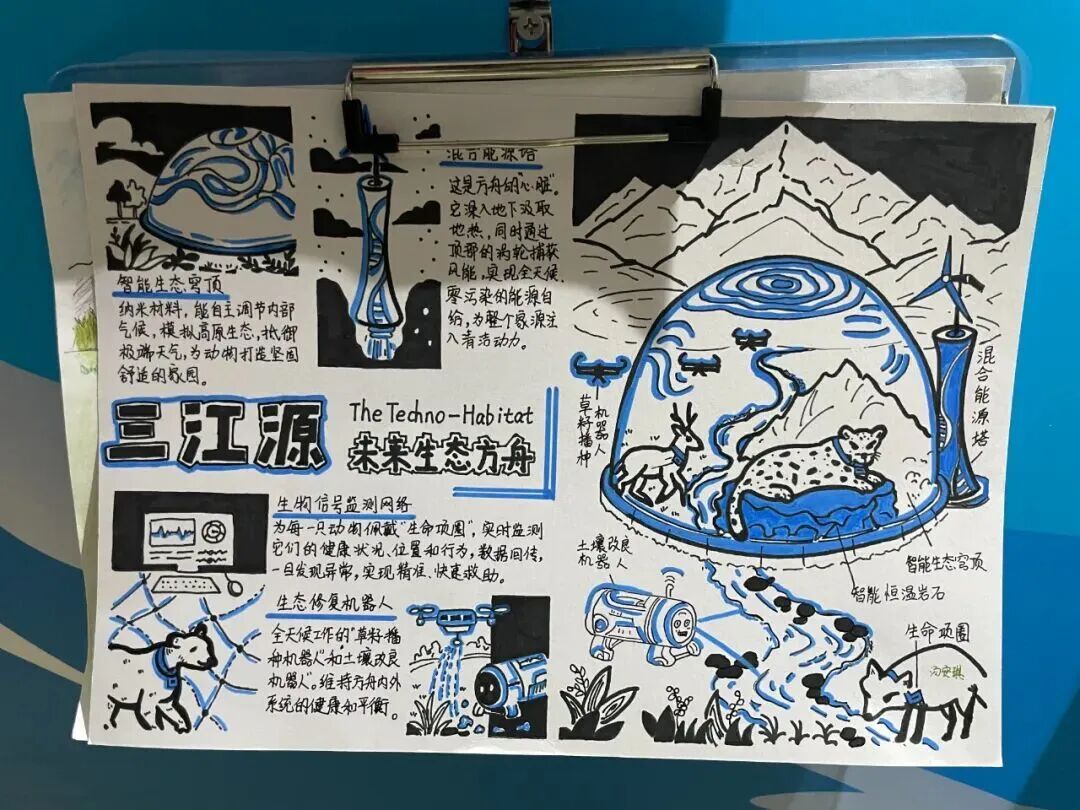 混合能源塔
这是方舟的"心脏"。
它深入地下汲取
地热，同时通过
顶部的涡轮捕获
风能，实现全天候、
零污染的能源自
给，为整个家源注
入清洁动力。
智能生态穹顶
纳米材料，能自主调节内部
气候，模拟高原生态，抵御
极端天气，为动物打造坚固
舒适的家园。
三江源
The Techno-Habitat
未来生态方舟
生物信号监测网络
为每一只动物佩戴"生命项圈"，实时监测
它们的健康状况、位置和行为，数据回传，
一旦发现异常，实现精准、快速救助。
生态修复机器人
全天候工作的"草籽播
种机器人"和"土壤改良
机器人"。维持方舟内外
系统的健康和平衡。
草籽播种
机器人
混合能源塔
土壤改良
机器人
智能生态穹顶
智能恒温岩石
生命项圈